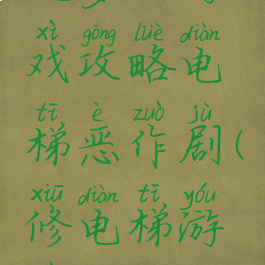 xì gōng lüè diàn
戏攻略电
tī è zuò jù
梯恶作剧(
xiū diàn tī yóu
修电梯游